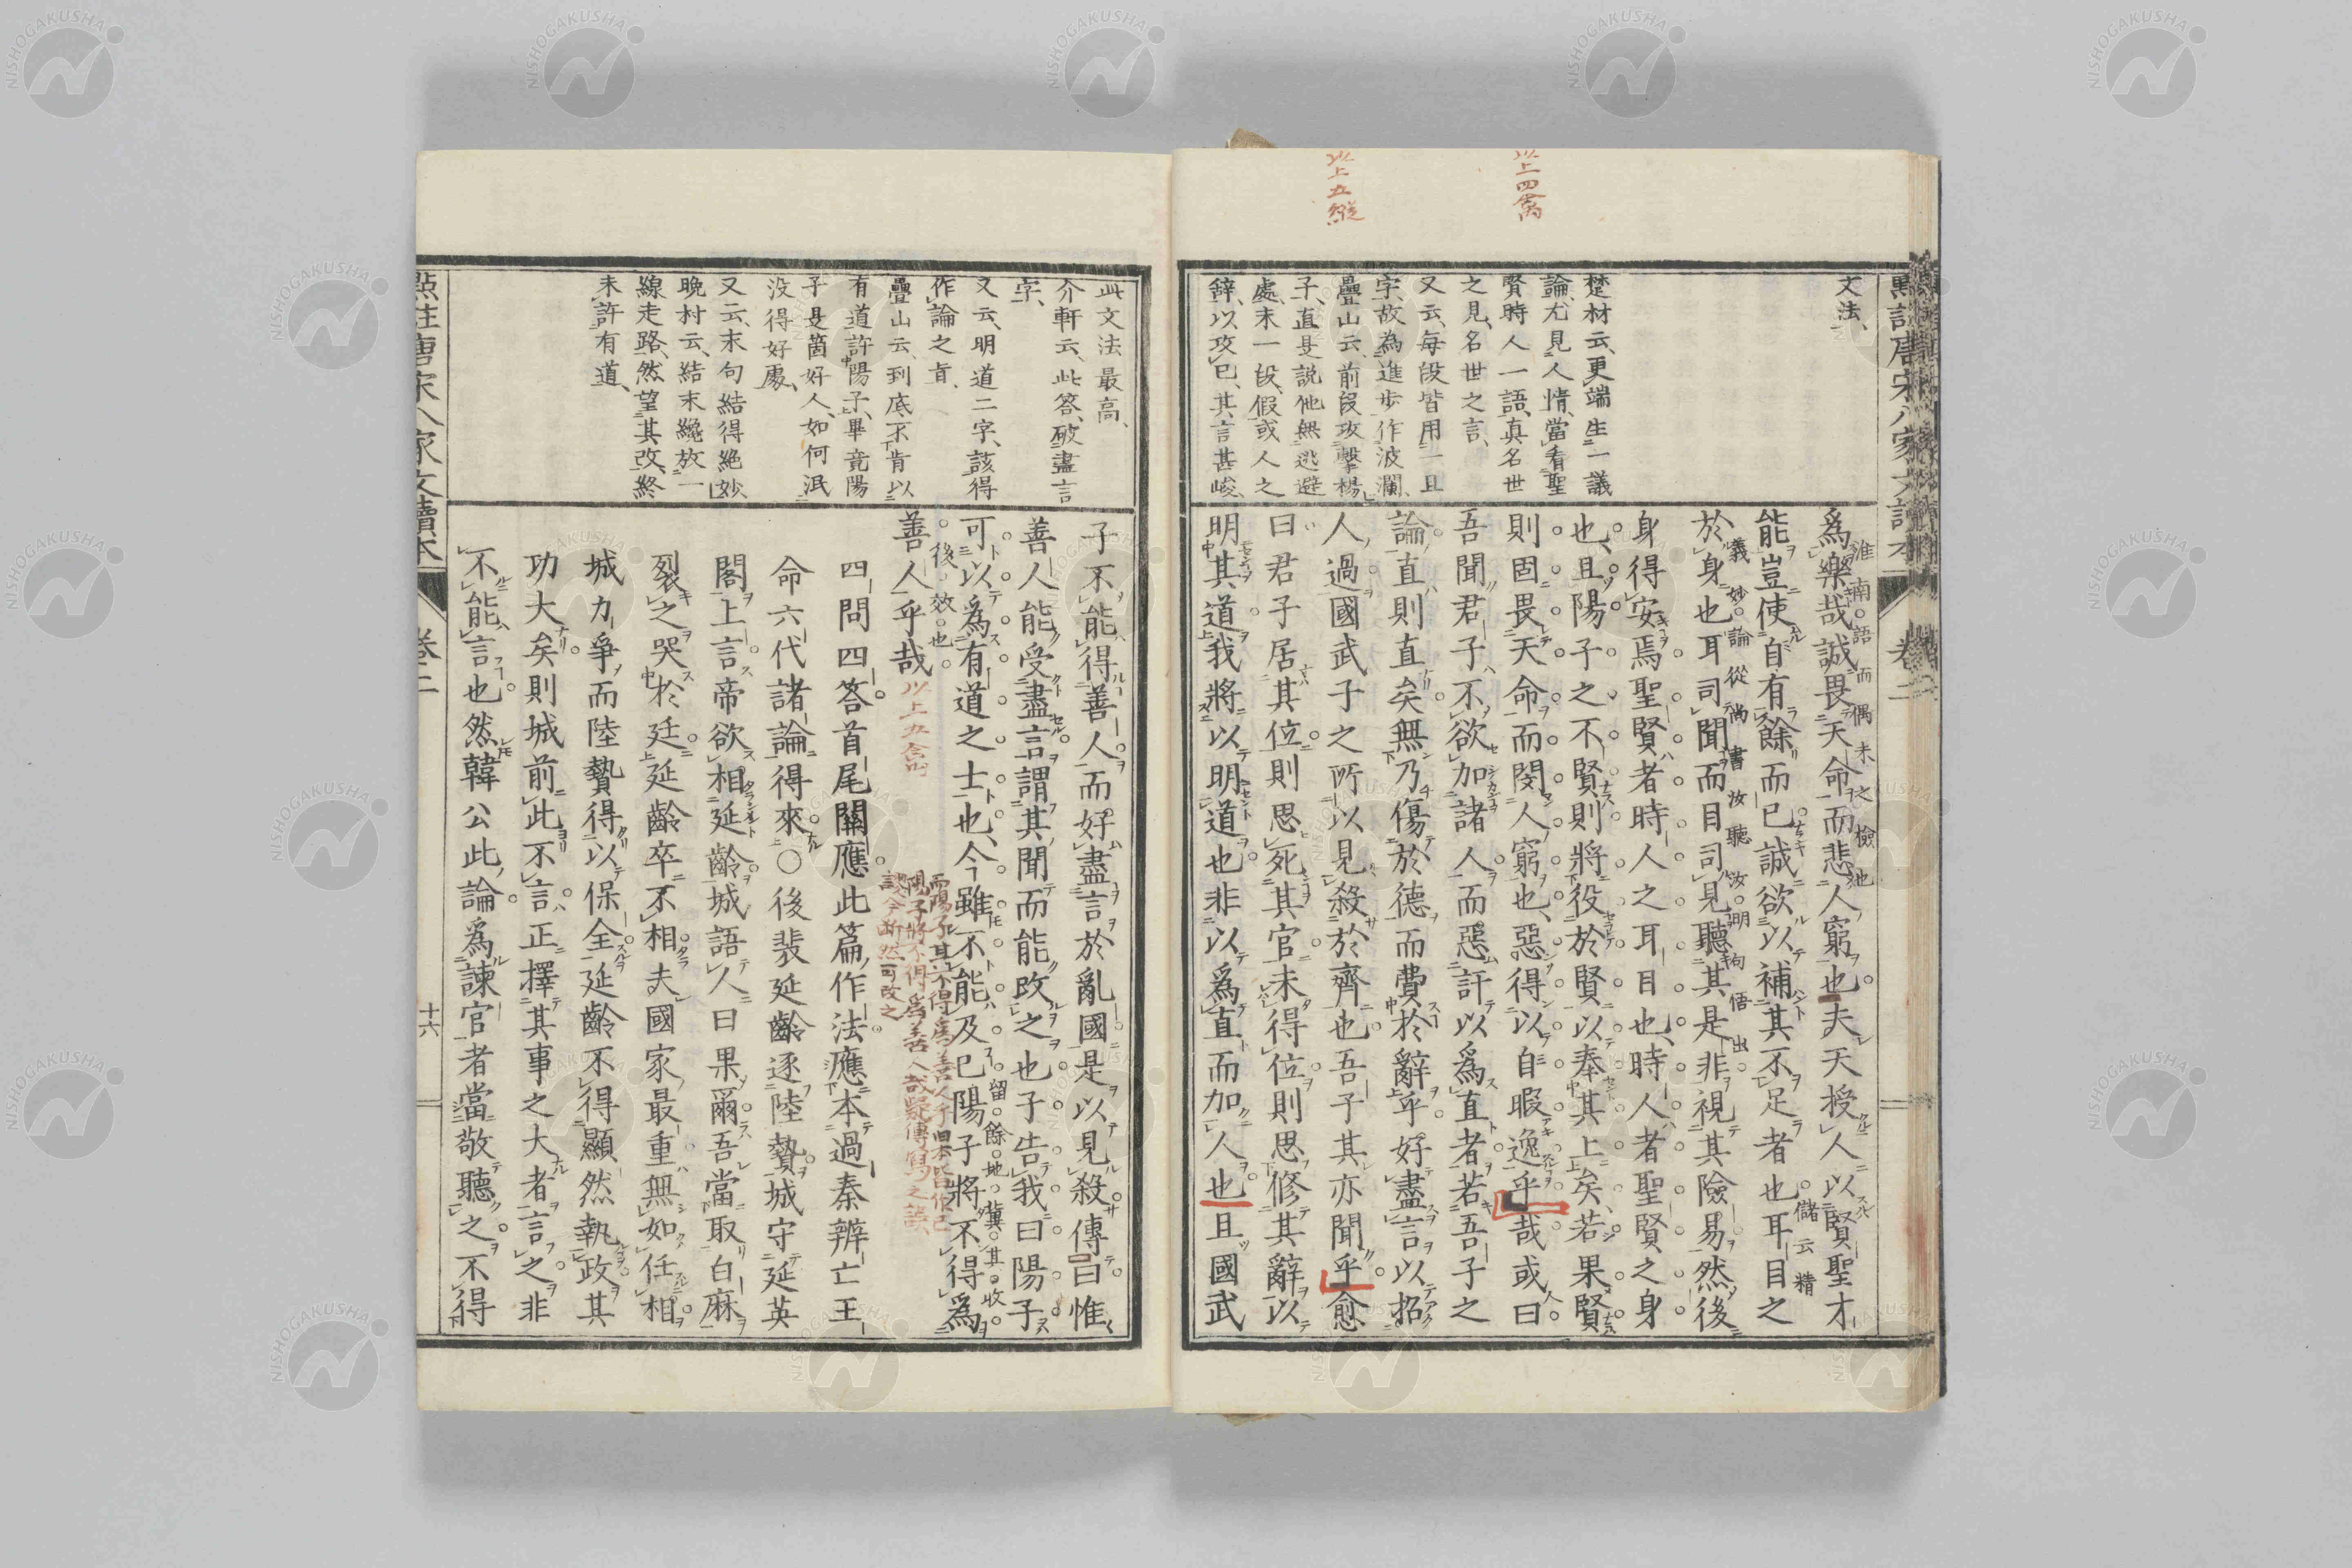 以上四禽
以上五縱
文法、
楚材云、更端生一議
論、尤見人情、當看聖
賢時人一語、真名世
之見、名世之言、
又云、每段皆用一且
字、故為進步作波瀾、
疊山云、前段攻擊楊
子、直是説他無逃避
處、末一段、假或人之
辭、以攻己、其言甚峻、
為樂哉誠畏天命而悲人窮也夫天授人以賢聖才
淮南語而偶未之檢也
能豈使自有餘而已誠欲以補其不足者也耳目之
儲云精
義妙論從尚書汝聽汝明句悟出
於身也耳司聞而目司見聽其是非視其險易然後
身得安焉聖賢者時人之耳目也時人者聖賢之身
也且陽子之不賢則將役於賢以奉其上矣若果賢
則固畏天命而閔人窮也惡得以自暇逸乎哉或曰
吾聞君子不欲加諸人而惡訐以為直者若吾子之
論直則直矣無乃傷於德而費於辭乎好盡言以招
人過國武子之所以見殺於齊也吾子其亦聞乎愈
曰君子居其位則思死其官未得位則思修其辭以
明其道我將以明道也非以為直而加人也且國武
此文法最高、
介軒云、此答、破盡言
字、
又云、明道二字、該得
作論之旨、
疊山云、到底不肯以
有道許陽子、畢竟陽
子是箇好人、如何泯
没得好處、
又云、末句結得絶妙、
晩村云、結末纔放一
線走路、然望其改、終
未許有道、
子不能得善人而好盡言於亂國是以見殺傳曰惟
善人能受盡言謂其聞而能改之也子告我曰陽子
可以為有道之士也今雖不能及已陽子將不得為
留餘地冀其收
後效也
善人乎哉
以上五合
四問四答首尾關應此篇作法應本過秦辨亡王
命六代諸論得來○後裴延齡逐陸贄城守延英
閣上言帝欲相延齡城語人曰果爾吾當取白麻
裂之哭於廷延齡卒不相夫國家最重無如任相
城力爭而陸贄得以保全延齡不得顯然執政其
功大矣則城前此不言正擇其事之大者言之非
不能言也然韓公此論為諫官者當敬聽之不得
點註唐宋八家文讀本
卷二
十六